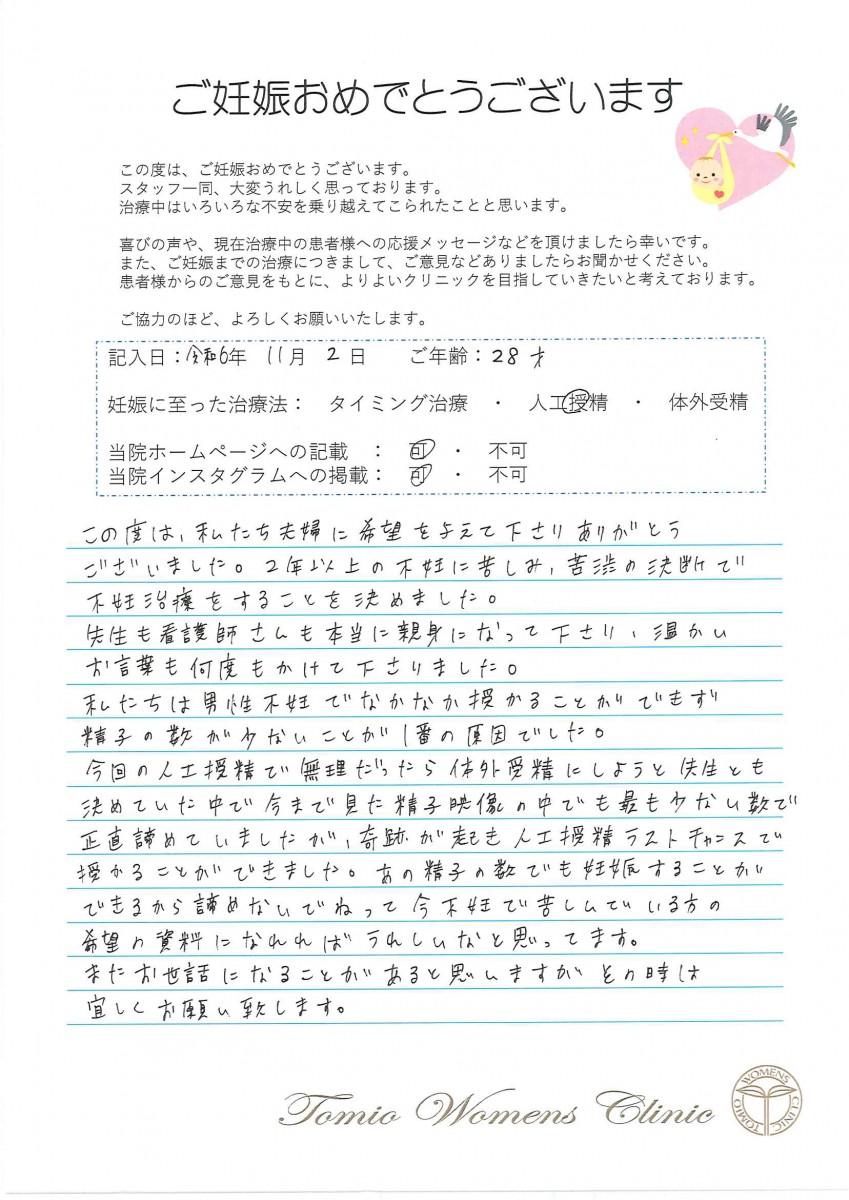 ご妊娠おめでとうございます
この度は、ご妊娠おめでとうございます。
スタッフ一同、大変うれしく思っております。
治療中はいろいろな不安を乗り越えてこられたことと思います。
喜びの声や、現在治療中の患者様への応援メッセージなどを頂けましたら幸いです。
また、ご妊娠までの治療につきまして、ご意見などありましたらお聞かせください。
患者様からのご意見をもとに、よりよいクリニックを目指していきたいと考えております。
ご協力のほど、よろしくお願いいたします。
記入日：令和6年 11月 2日 ご年齢：28才
妊娠に至った治療法： タイミング治療 ・ 人工授精 ・ 体外受精
当院ホームページへの記載 ： 可 ・ 不可
当院インスタグラムへの掲載： 可 ・ 不可
この度は、私たち夫婦に希望を与えて下さりありがとう
ございました。2年以上の不妊に苦しみ、苦渋の決断で
不妊治療をすることを決めました。
先生も看護師さんも本当に親身になって下さり、温かい
お言葉も何度もかけて下さりました。
私たちは男性不妊でなかなか授かることができず
精子の数が少ないことが1番の原因でした。
今回の人工授精で無理だったら体外受精にしようと先生とも
決めていた中で今まで見た精子映像の中でも最も少ない数で
正直諦めていましたが、奇跡が起き人工授精ラストチャンスで
授かることができました。あの精子の数でも妊娠することが
できるから諦めないでねって今不妊で苦しんでいる方の
希望の資料になれればうれしいなと思ってます。
またお世話になることがあると思いますがその時は
宜しくお願い致します。
Tomio Womens Clinic
TOMIO WOMENS CLINIC